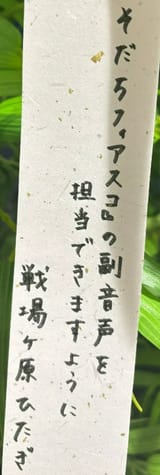 そだちフィアスコ』の副音声を
担当できますように
戦場ヶ原ひたぎ